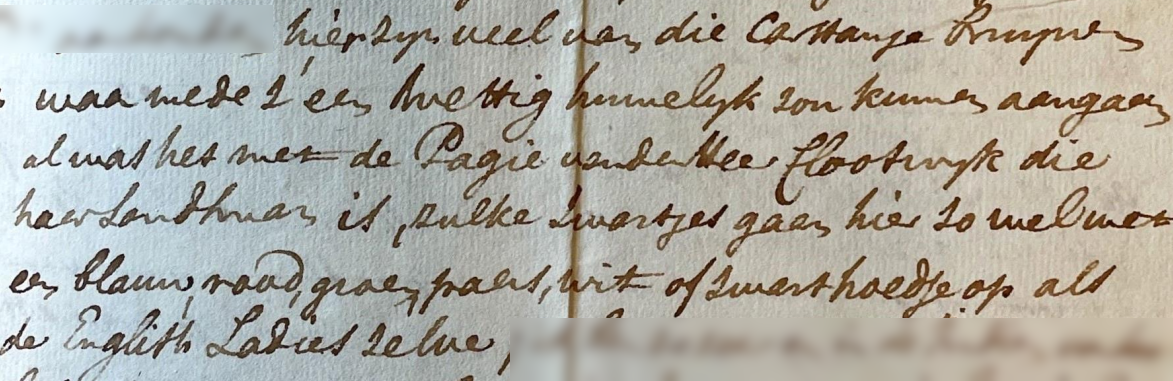 hier zyn veel van die Carstange bruynen
waa mede z' een wettig huwelyk zou kunnen aangaan
al was het met de Pagie van de Heer Slootwyk die
haar Landsman is, zulke zwartjes gaan hier zo wel met
een blauw, rood, groen, paers, wit of zwart hoedje op als
de English Ladies zelve,